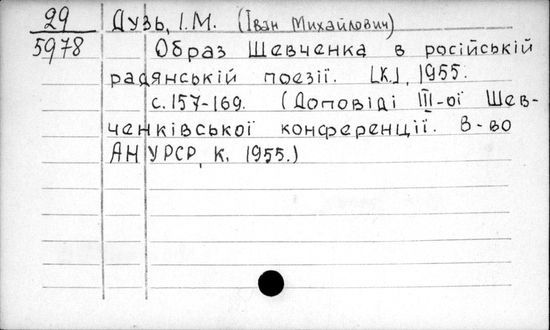 29 Дузь, І.М. (Іван Михайлович)
5978 Образ Шевченка в російській
радянській поезії. [К.], 1955.
с.157-169. (Доповіді III-ої Шев-
ченківської конференції. В-во
АН УРСР, К. 1955.)